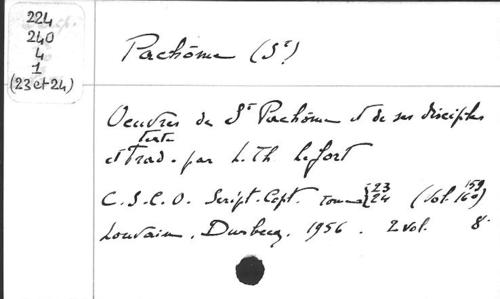 224
240
4
1
(23 et 24)
Pachôme (St)
Oeuvres de St Pachôme et de ses disciples
texte
et Trad. par L. Th Lefort
C.S.C.O. Script. Copt. Tomes {23 24 (Vol. 159 160)
Louvain, Durbecq, 1956. 2 vol. 8°